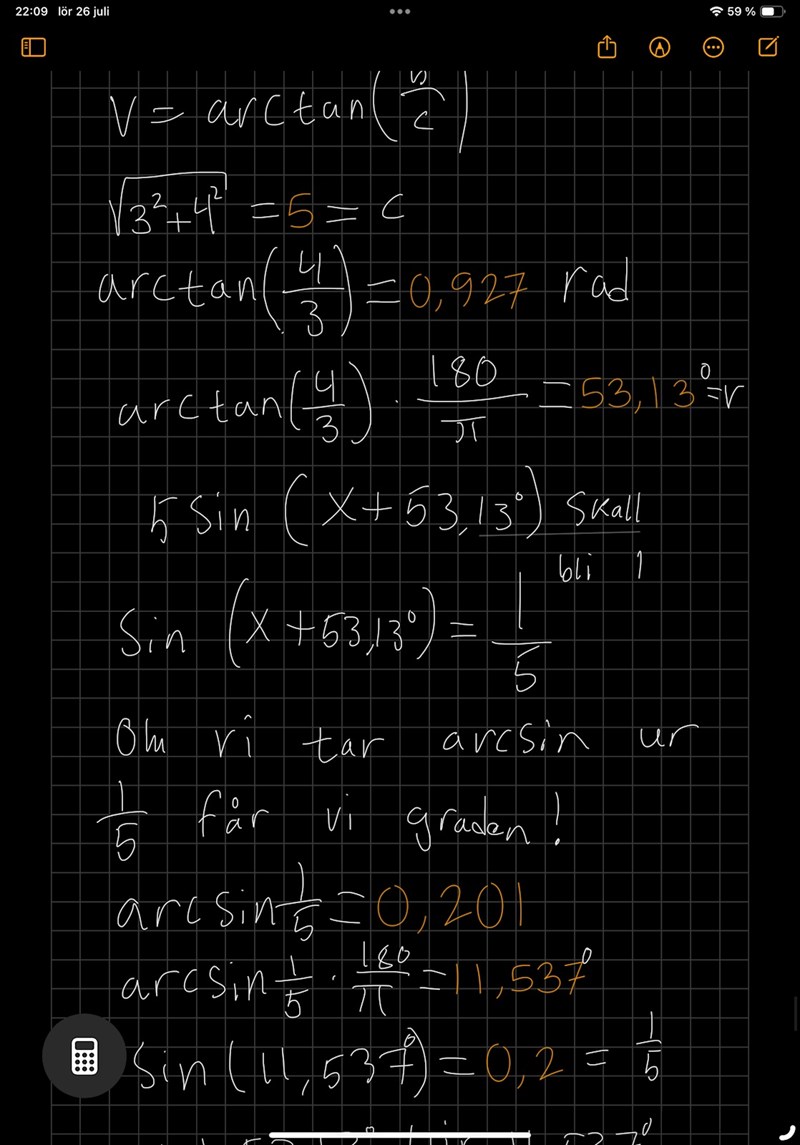 22:09 lör 26 juli 59 %
V = arctan(b/c)
√(3²+4²) = 5 = c
arctan(4/3) = 0,927 rad
arctan(4/3) · 180/π = 53,13° = v
5 sin (x + 53,13°) skall
bli 1
sin (x + 53,13°) = 1/5
Om vi tar arcsin ur
1/5 får vi graden!
arcsin 1/5 = 0,201
arcsin 1/5 · 180/π = 11,537°
sin(11,537°) = 0,2 = 1/5